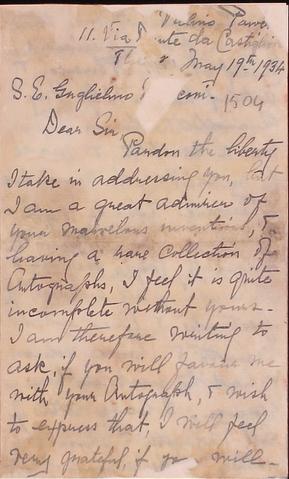 11. Via
May 19th 1934
S. E. Guglielmo coni-
1504
Dear Sir
Pardon the liberty
I take in addressing you, but
I am a great admirer of
your marvelous inventions, &
having a rare collection of
Autographs, I feel it is quite
incomplete without yours-
I am therefore writing to
ask, if you will favour me
with your Autograph, & wish
to express that, I will feel
very grateful, if yo will-